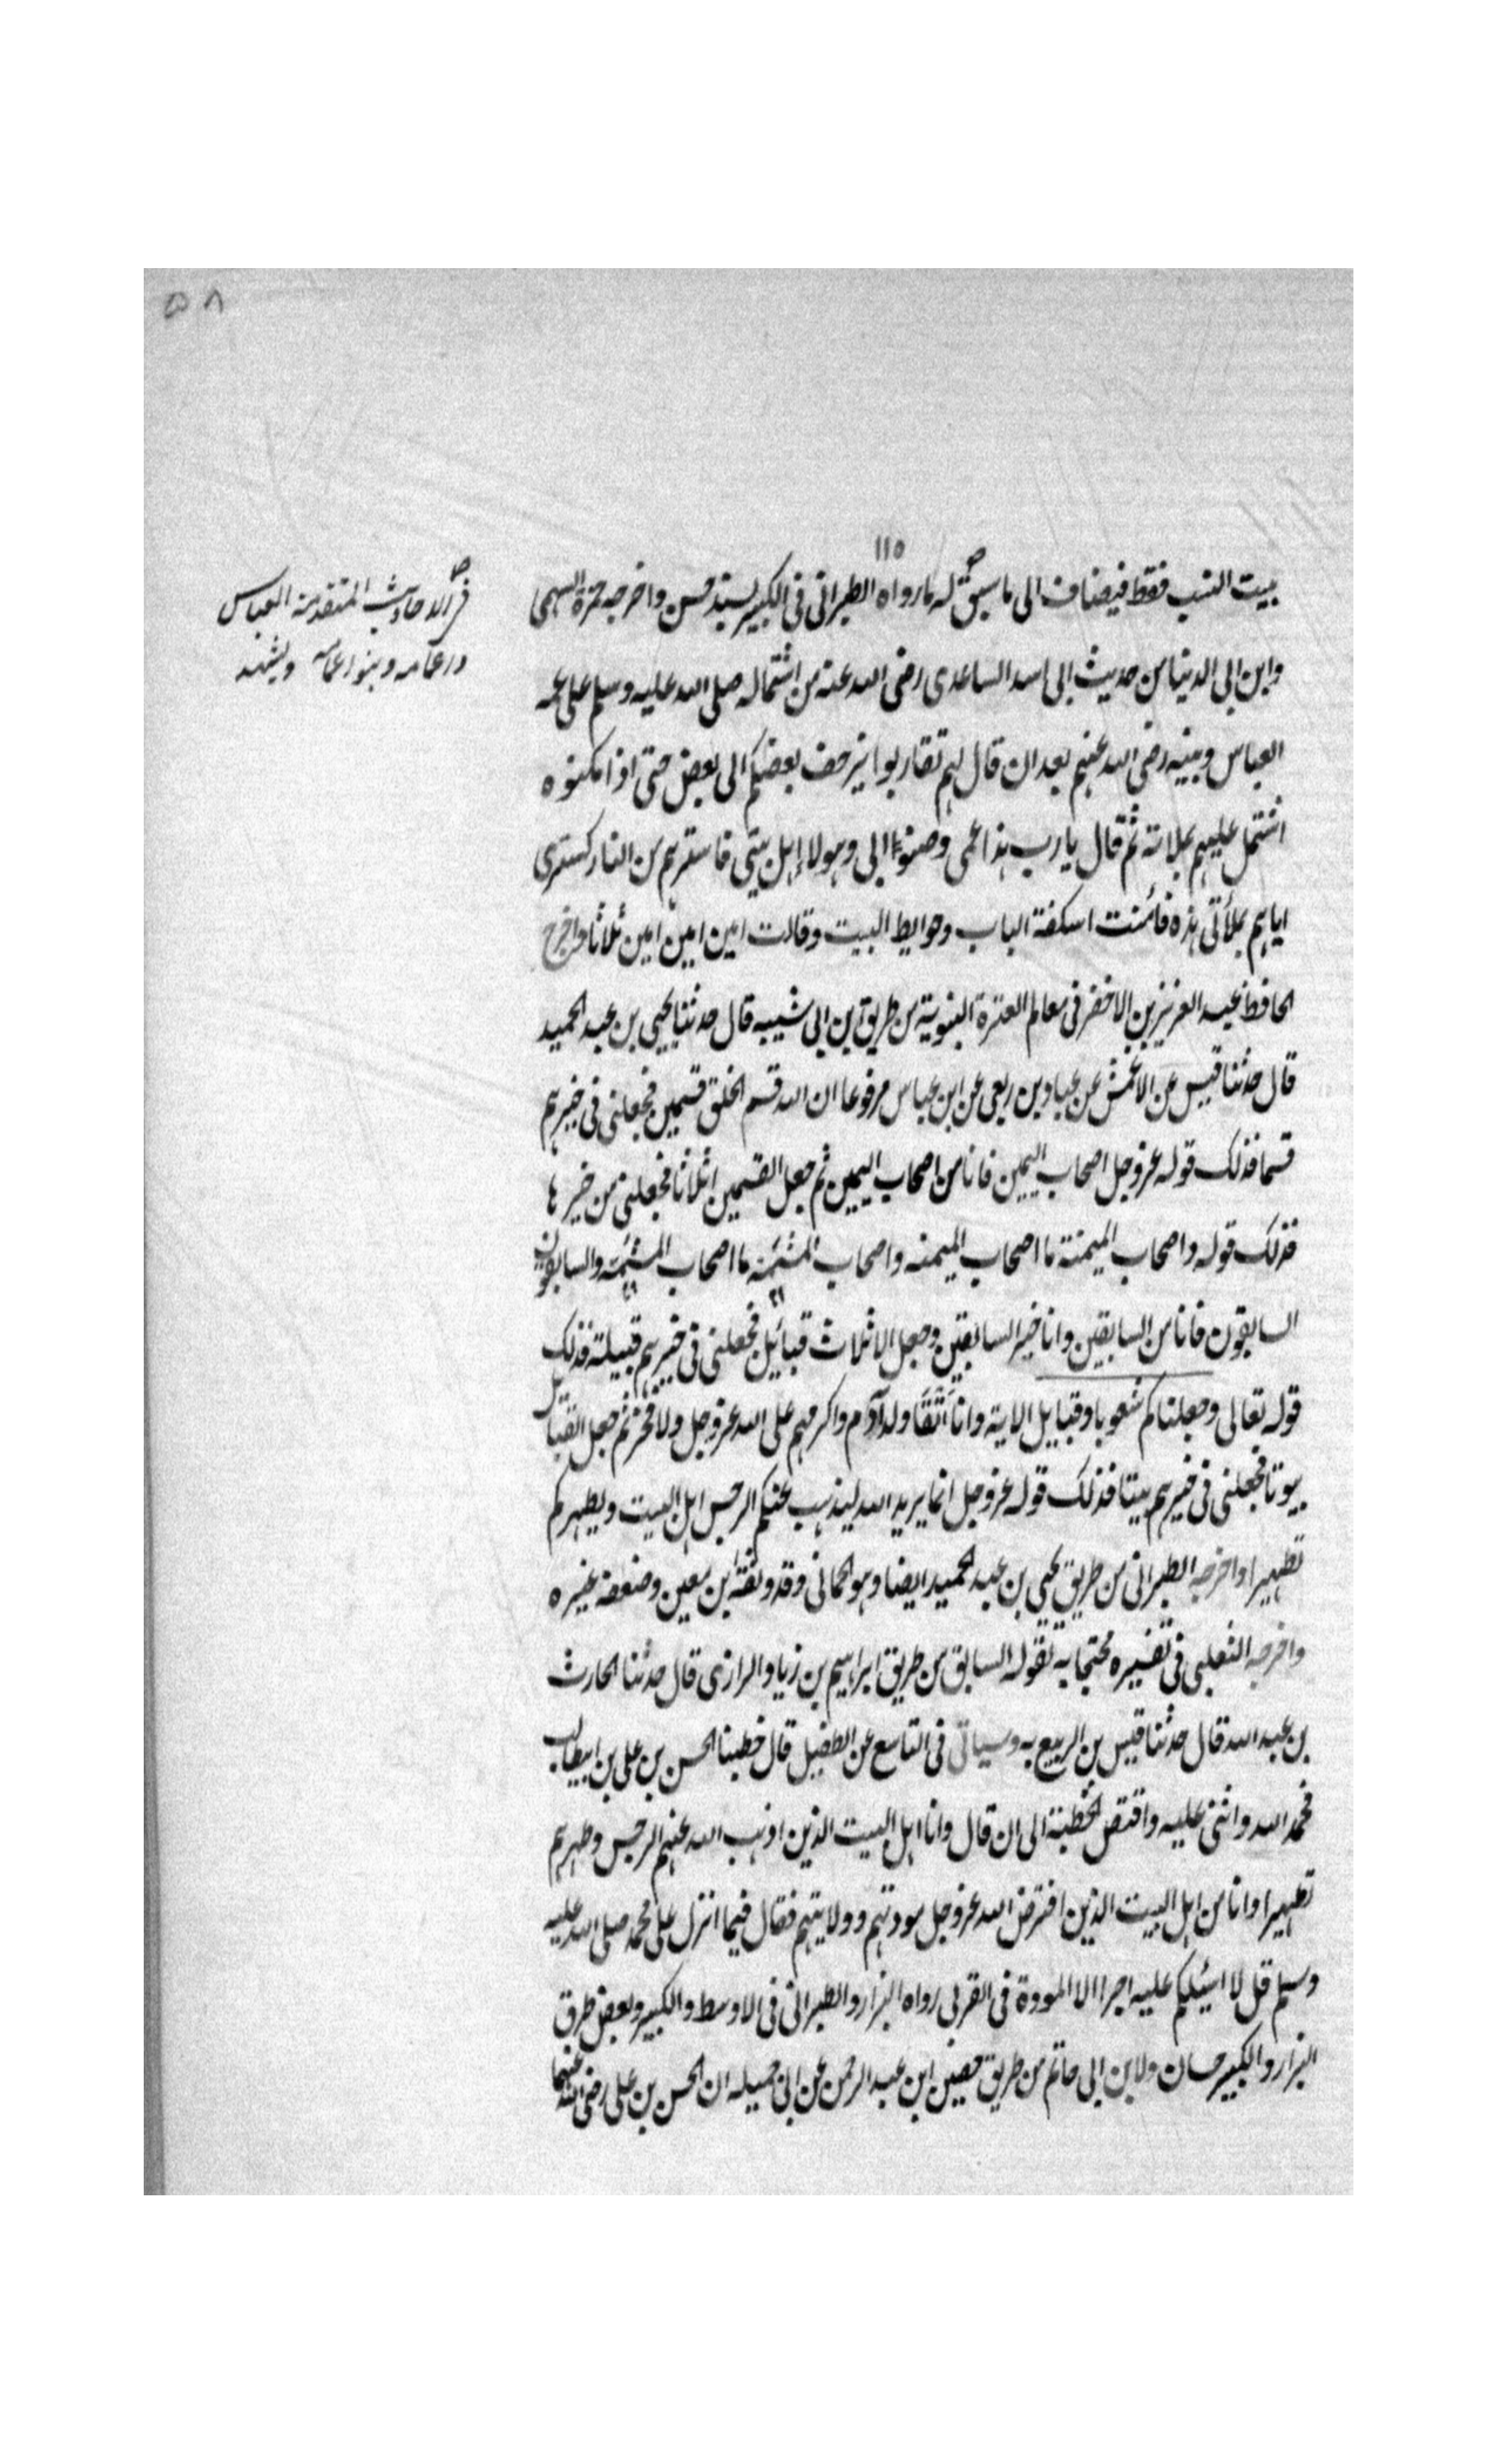 ٥٨
١١٥
بيت النسب فقط فيضاف الى ما سبق له ما رواه الطبراني في الكبير بسند حسن واخرجه حمزة السهمي
في الاحاديث المتقدمة العباس
ويشهد
وابن ابي الدنيا من حديث ابي اسد الساعدى رضى الله عنه من اشتماله صلى الله عليه وسلم على عمه
العباس وبنيه رضى الله عنهم بعد ان قال لهم تقاربوا يزحف بعضكم الى بعض حتى اذا امكنوه
اشتمل عليهم بملاءته ثم قال يا رب هذا عمى وصنو ابى وهولاء اهل بيتى فاسترهم من النار كسترى
اياهم بملأتى هذه فأمنت اسكفة الباب وحوايط البيت وقالت امين امين امين ثلاثا واخرج
الحافظ عبد العزيز بن الاخضر فى معالم العترة النبوية من طريق بن ابى شيبه قال حدثنا يحيى بن عبد الحميد
قال حدثنا قيس عن الاعمش عن عباد بن ربعى عن ابن عباس مرفوعا ان الله قسم الخلق قسمين فجعلنى فى خيرهم
قسما فذلك قوله عز وجل اصحاب اليمين فانا من اصحاب اليمين ثم جعل القسمين اثلاثا فجعلنى من خيرها
فذلك قوله واصحاب الميمنة ما اصحاب الميمنه واصحاب المشئمة ما اصحاب المشئمة والسابقون
السابقون فانا من السابقين وانا خير السابقين وجعل الاثلاث قبائيل فجعلنى فى خيرهم قبيلة فذلك
قوله تعالى وجعلناكم شعوبا وقبايل الاية وانا اتقا ولد آدم واكرمهم على الله عز وجل ولا فخر ثم جعل القبايل
بيوتا فجعلنى فى خيرهم بيتا فذلك قوله عز وجل انما يريد الله ليذهب عنكم الرجس اهل البيت ويطهركم
تطهيرا واخرجه الطبرانى من طريق يحيى بن عبد الحميد ايضا وهو الحمانى وقد وثقه ابن معين وضعفه غيره
واخرجه الثعلبى فى تفسيره محتجا به لقوله السابق من طريق ابراهيم بن زياد الرازى قال حدثنا الحارث
بن عبد الله قال حدثنا قيس بن الربيع به وسياتى فى التاسع عن الطفيل قال خطبنا الحسن بن على بن ابيطالب
فحمد الله واثنى عليه واقتص الخطبة الى ان قال وانا اهل البيت الذين اذهب الله عنهم الرجس وطهرهم
تطهيرا وانا من اهل البيت الذين افترض الله عز وجل مودتهم وولايتهم فقال فيما انزل على محمد صلى الله عليه
وسلم قل لا اسئلكم عليه اجرا الا المودة فى القربى رواه البزار والطبرانى فى الاوسط والكبير وبعض طرق
البزار والكبير حسان ولابن ابى حاتم من طريق حصين ابن عبد الرحمن عن ابى جميله ان الحسن بن على رضى الله عنهما